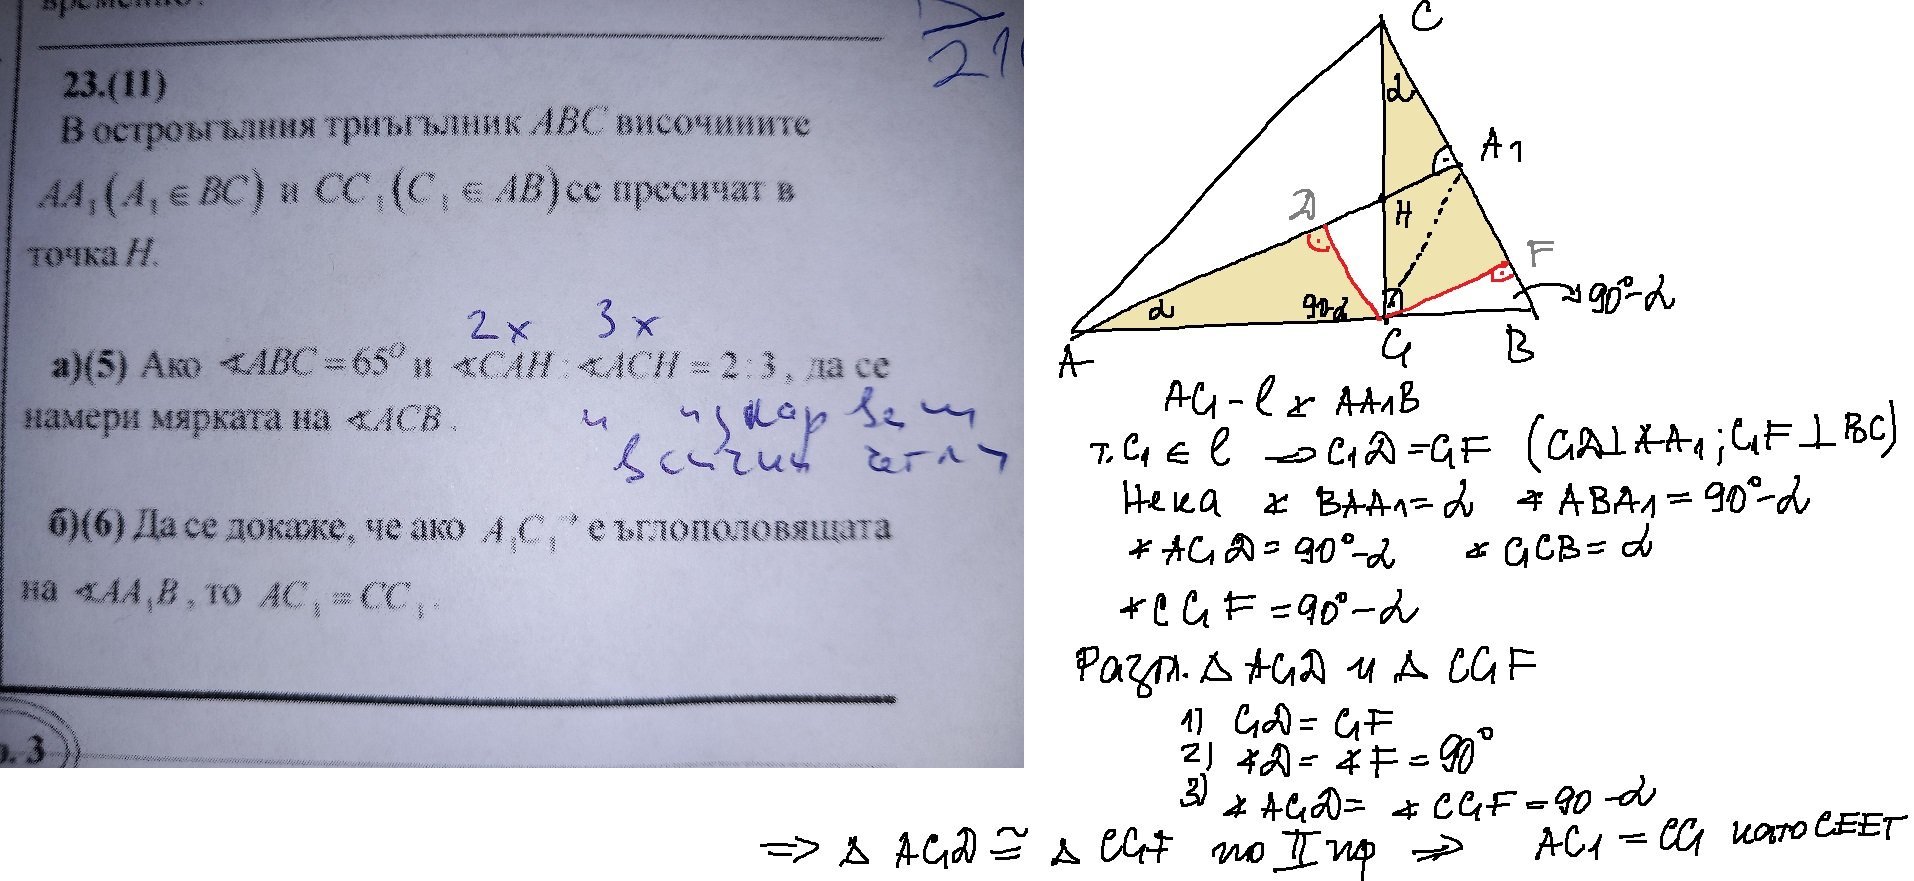 23.(11)
В остроъгълния триъгълник ABC височините
AA₁(A₁ ∈ BC) и CC₁(C₁ ∈ AB) се пресичат в
точка H.
2x 3x
а)(5) Ако ∢ABC = 65° и ∢CAH : ∢ACH = 2 : 3, да се
намери мярката на ∢ACB.
и
всички ъгли
б)(6) Да се докаже, че ако A₁C₁→ е ъглополовящата
на ∢AA₁B, то AC₁ = CC₁.
C
α
A1
D
H
F
α
90-α
90°-α
A
C1
B
AC1 - l ∢ AA1B
т. C1 ∈ l → C1D = C1F (C1D⊥AA1; C1F⊥BC)
Нека ∢ BAA1 = α ∢ ABA1 = 90°-α
∢ AC1D = 90°-α ∢ C1CB = α
∢ CC1F = 90°-α
Разгл. △ AC1D и △ CC1F
1) C1D = C1F
2) ∢D = ∢F = 90°
3) ∢ AC1D = ∢ CC1F = 90-α
⇒ △ AC1D ≅ △ CC1F по II пр ⇒ AC1 = CC1 като СЕЕТ